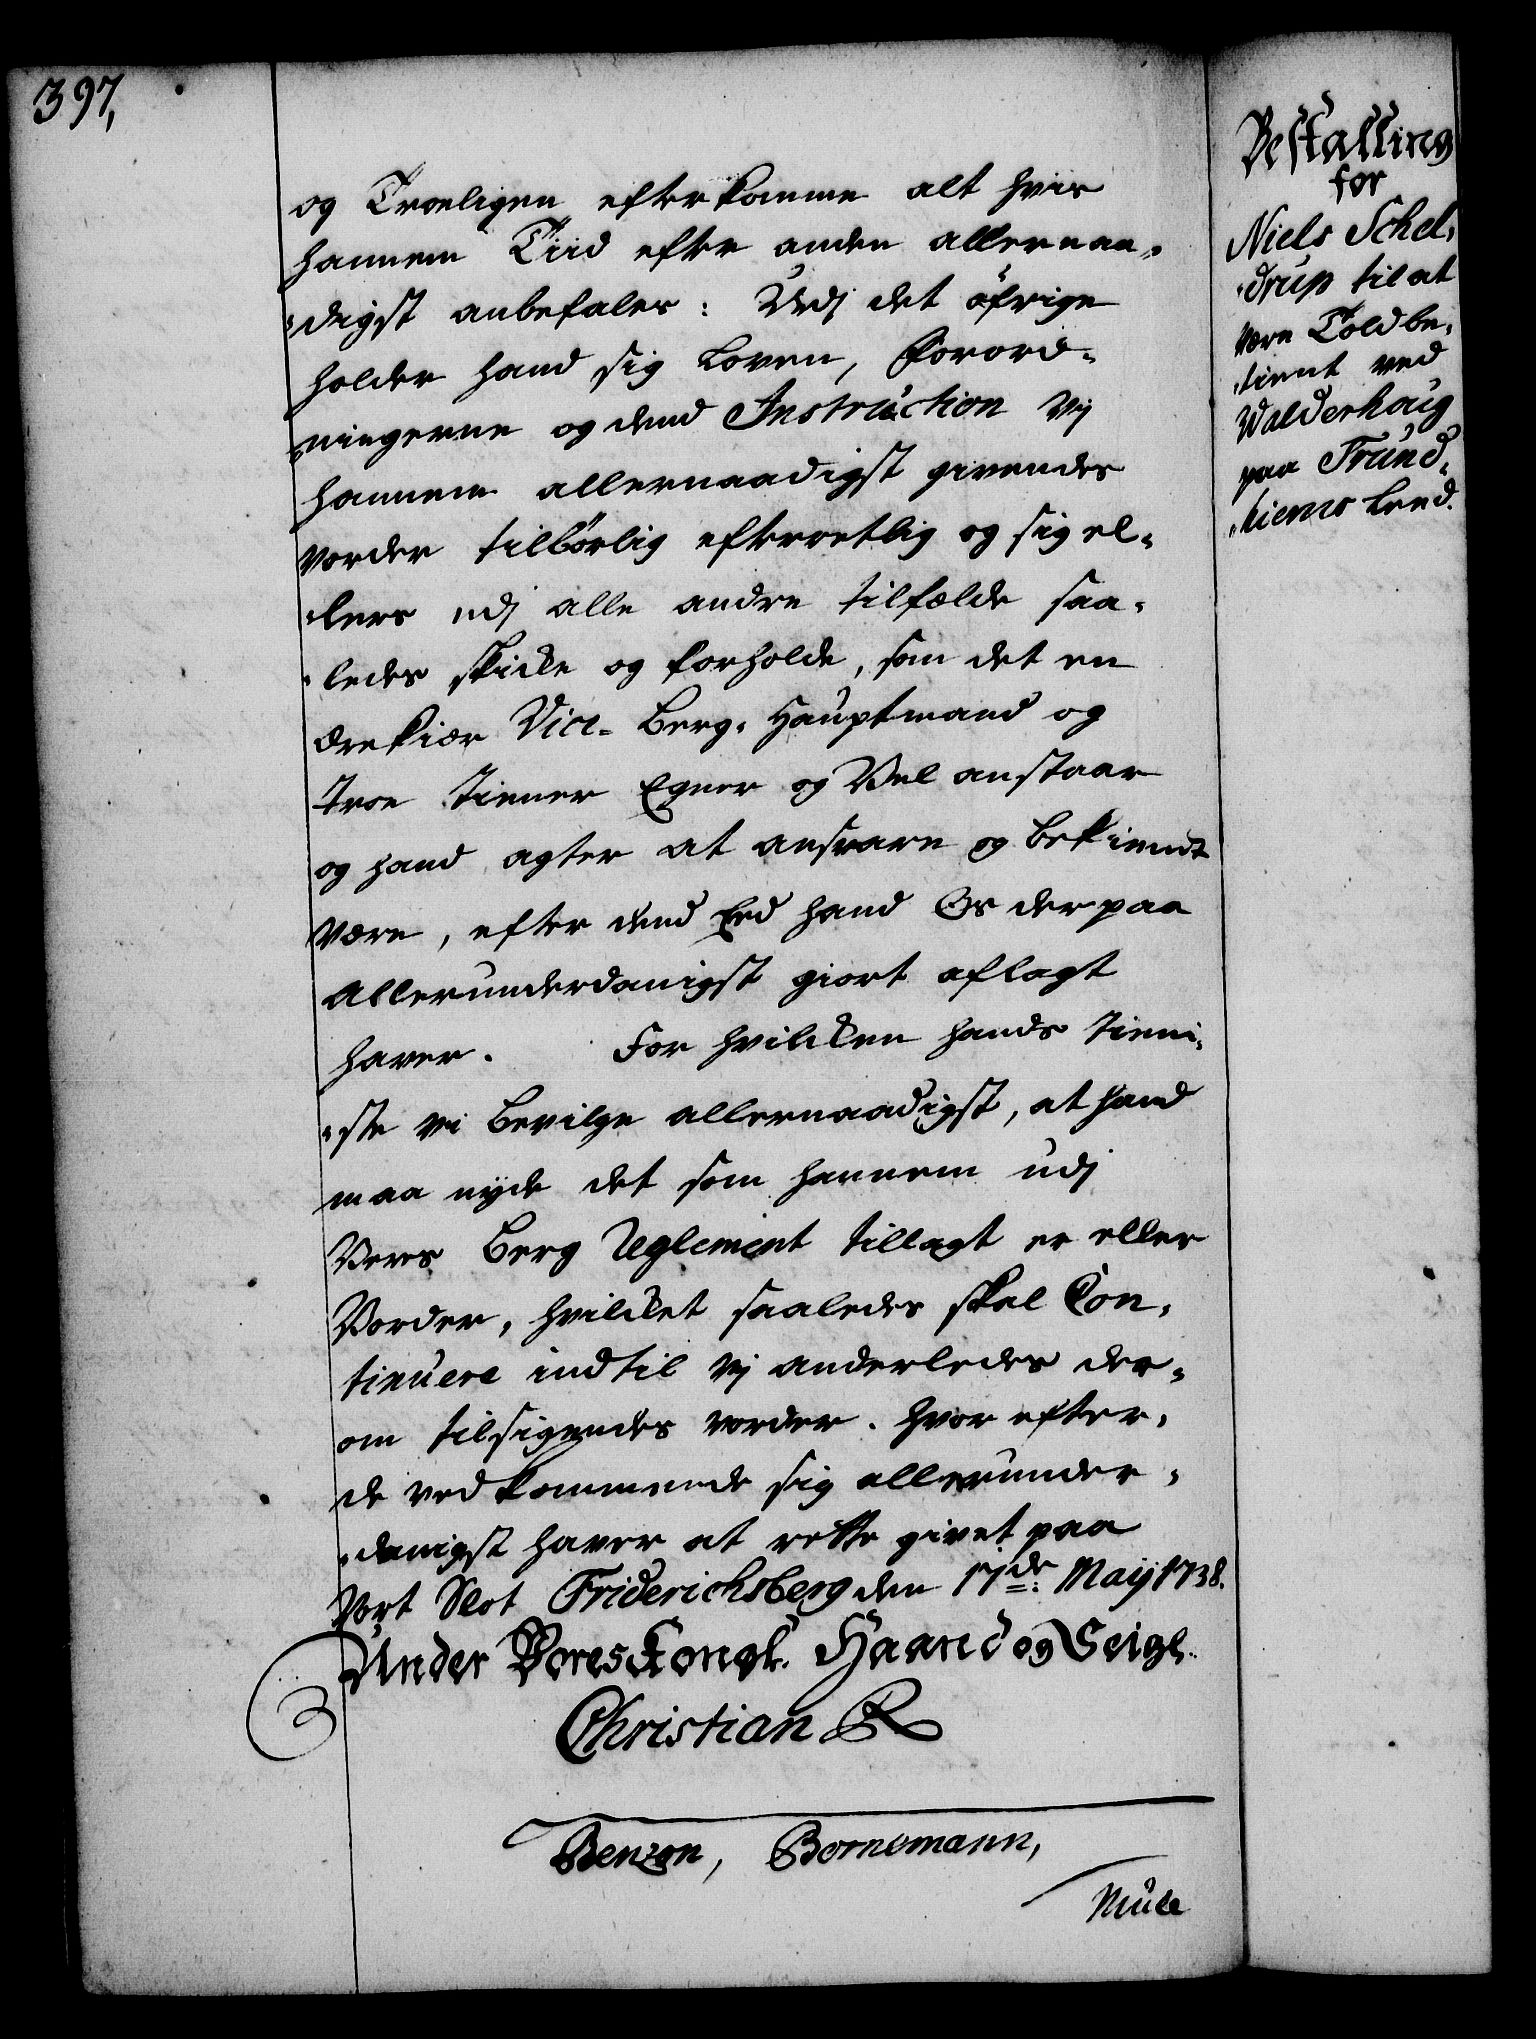 397,
og Troeligen efterkomme alt hvis
hannem Tiid efter anden allernaa-
-digst anbefales: Udj det öfrige
holder hand sig Loven, Forord-
-ningerne og dend Instruction Vij
hannem allernaadigst givendes
vorder tilbörlig efterretlig og sig el-
-lers udj alle andre tilfælde saa-
-ledes skicke og forholde, som det en
ærekiær Vice-Berg-Hauptmand og
troe Tiener Egner og Vel anstaar
og hand agter at ansvare og bekiendt
være, efter dend Eed hand Os derpaa
allerunderdanigst giort aflagt
haver. For hvilcken hands tieni-
-ste vi bevilge allernaadigst, at hand
maa nyde det som hannem udj
Vores Berg Reglement tillagt er eller
Vorder, hvilcket saaledes skal Con-
tinuere indtil Vj anderledes der-
om tilsigendes vorder. Hvorefter
de vedkommende sig allerunder-
-danigst haver at rette givet paa
Vort Slot Friderichsberg den 17de: Maij 1738.
Under Vores Kongl. Haand og Seigl.
Christian R
Benzon, Bornemann,
Mule
Bestalling
for
Niels Schel-
-drup til at
være Toldbe-
-tient ved
Walderhoug
paa Trund-
-hiems Leed.